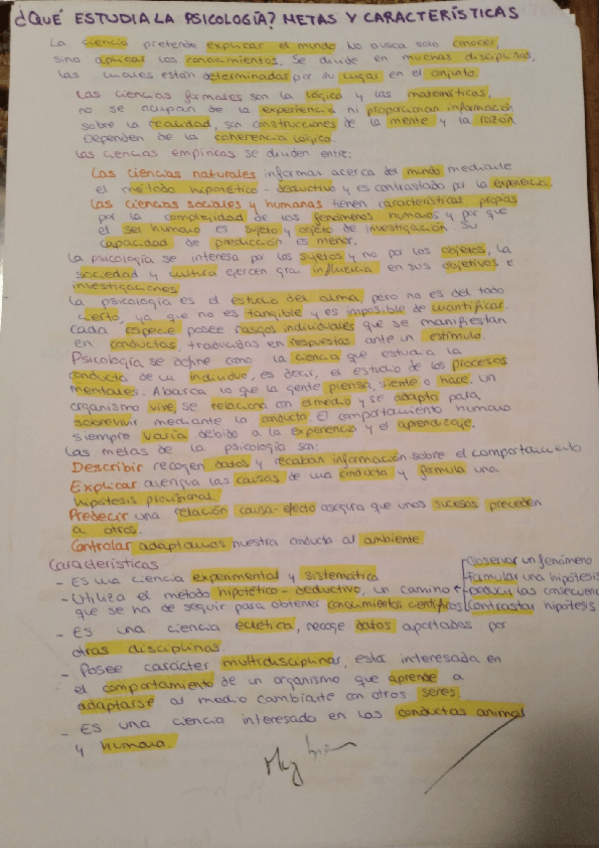 ¿QUÉ ESTUDIA LA PSICOLOGÍA? METAS Y CARACTERÍSTICAS
La ciencia pretende explicar el mundo. No busca solo conocer,
sino aplicar los conocimientos. Se divide en muchas disciplinas,
las cuales están determinadas por su lugar en el conjunto.
Las ciencias formales son la lógica y las matemáticas,
no se ocupan de la experiencia ni proporcionan información
sobre la realidad, son construcciones de la mente y la razón.
Dependen de la coherencia lógica.
Las ciencias empíricas se dividen entre:
Las ciencias naturales informan acerca del mundo mediante
el método hipotético-deductivo y es contrastado por la experiencia.
Las ciencias sociales y humanas tienen características propias
por la complejidad de los fenómenos humanos y por que
el ser humano es sujeto y objeto de investigación. Su
capacidad de predicción es menor.
La psicología se interesa por los sujetos y no por los objetos, la
sociedad y cultura ejercen gran influencia en sus objetivos e
investigaciones
La psicología es el estudio del alma, pero no es del todo
cierto, ya que no es tangible y es imposible de cuantificar.
Cada especie posee rasgos individuales que se manifiestan
en conductas, traducidas en respuestas ante un estímulo.
Psicología se define como la ciencia que estudia la
conducta de un individuo, es decir, el estudio de los procesos
mentales. Abarca lo que la gente piensa, siente o hace. Un
organismo vive, se relaciona con el medio y se adapta para
sobrevivir mediante la conducta. El comportamiento humano
siempre varía debido a la experiencia y el aprendizaje.
Las metas de la psicología son:
Describir recogen datos y recaban información sobre el comportamiento
Explicar averigua las causas de una conducta y formula una
hipótesis provisional.
Predecir una relación causa-efecto asegura que unos sucesos preceden
a otros.
Controlar adaptamos nuestra conducta al ambiente
Características
- Es una ciencia experimental y sistemática
- Utiliza el método hipotético-deductivo, un camino
que se ha de seguir para obtener conocimientos científicos
Observar un fenómeno
Formular una hipótesis
Deducir las consecuenc
Contrastar hipótesis
- Es una ciencia ecléctica, recoge datos aportados por
otras disciplinas.
- Posee carácter multidisciplinar, está interesada en
el comportamiento de un organismo que aprende a
adaptarse al medio cambiante con otros seres.
- Es una ciencia interesado en las conductas animal
y humana.